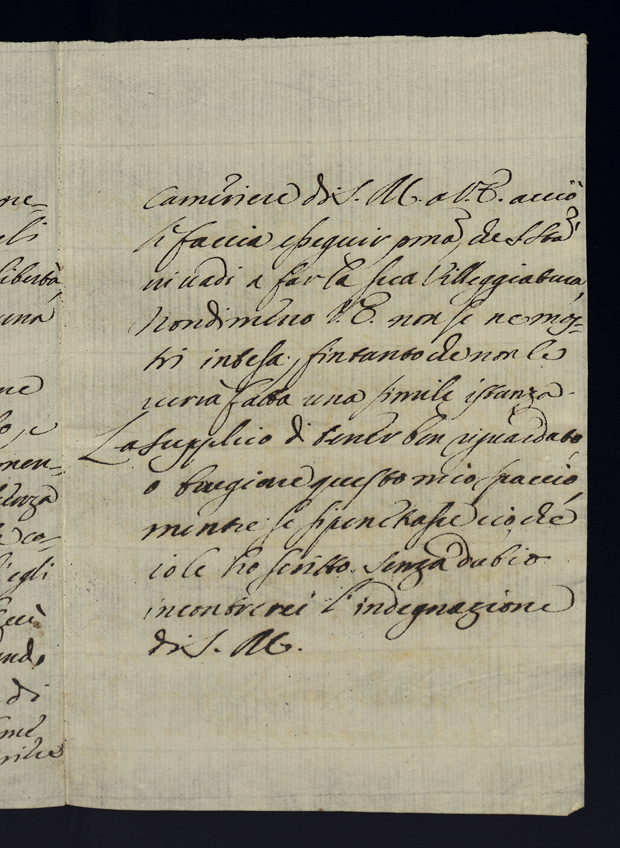 ne-
eli
libertà
una
ne
lo, e
men-
denza
co-
egli
ando
di
Cameriere di S. M. a V. E. acciò
si faccia eseguir pma, che S. Stà
vi vadi a far la sua Villeggiatura,
Nondimeno V. E. non se ne mos-
tri intesa, fintanto che non le
verrà fatta una simile istanza.
La supplico di tener ben riguardato,
o bruggiare questo mio spaccio,
mentre se si penetrasse ciò che
io le ho scritto, senza dubio
incontrerei l'indegnazione
di S. M.